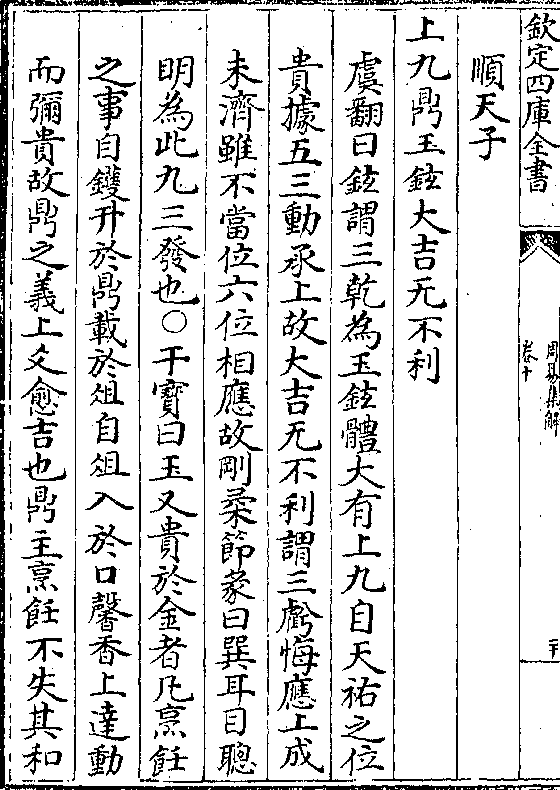 欽定四庫全書
周易集解
卷十
順天子
上九鼎玉鉉大吉无不利
虞翻曰鉉謂三乾為玉鉉體大有上九自天祐之位
貴據五三動承上故大吉无不利謂三虧悔應上成
未濟雖不當位六位相應故剛柔節彖曰巽耳目聰
明為此九三發也○干寶曰玉又貴於金者凡烹飪
之事自鑊升於鼎載於俎自俎入於口馨香上達動
而彌貴故鼎之義上爻愈吉也鼎主烹飪不失其和